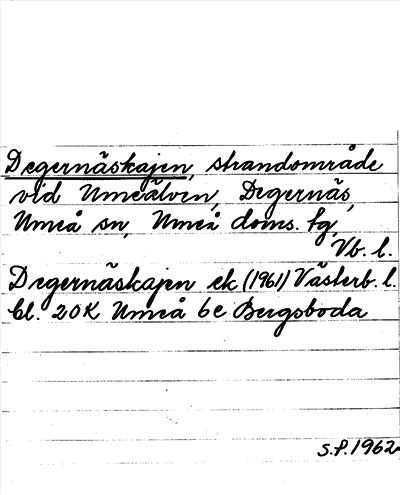 Degernäskajen, strandområde
vid Umeälven, Degernäs,
Umeå sn, Umeå doms. tg,
Vb. l.
Degernäskajen ek (1961) Västerb. l.
bl. 20K Umeå 6e Bergsboda
S.P. 1962